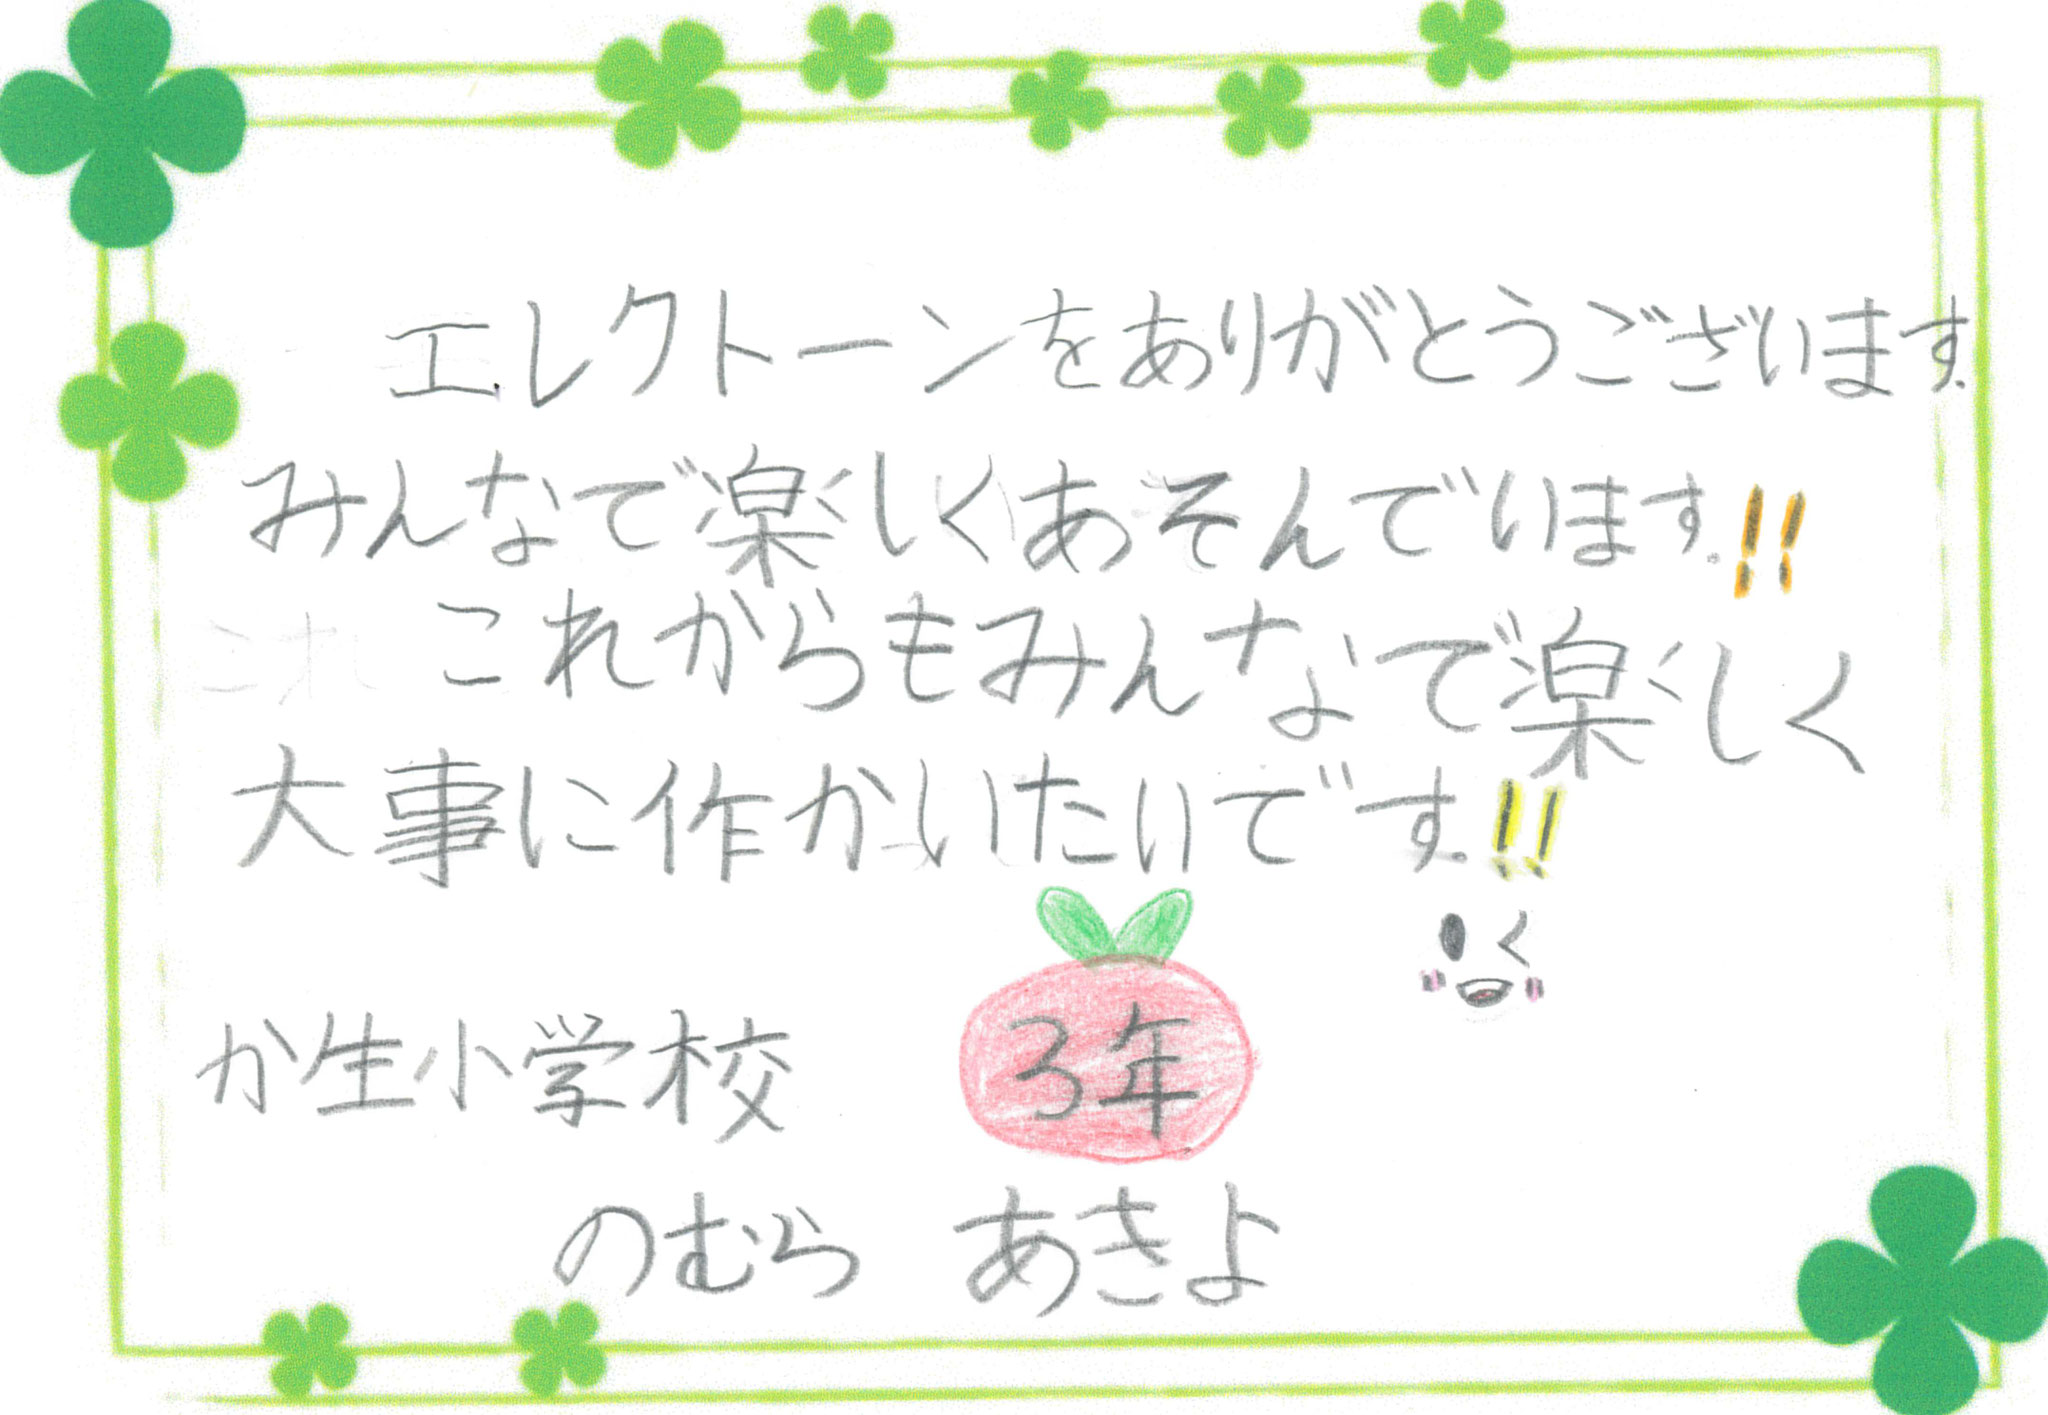 エレクトーンをありがとうございます。
みんなで楽しくあそんでいます。!!
これからもみんなで楽しく
大事に作かいたいです。!!
か生小学校 3年
のむら あきよ